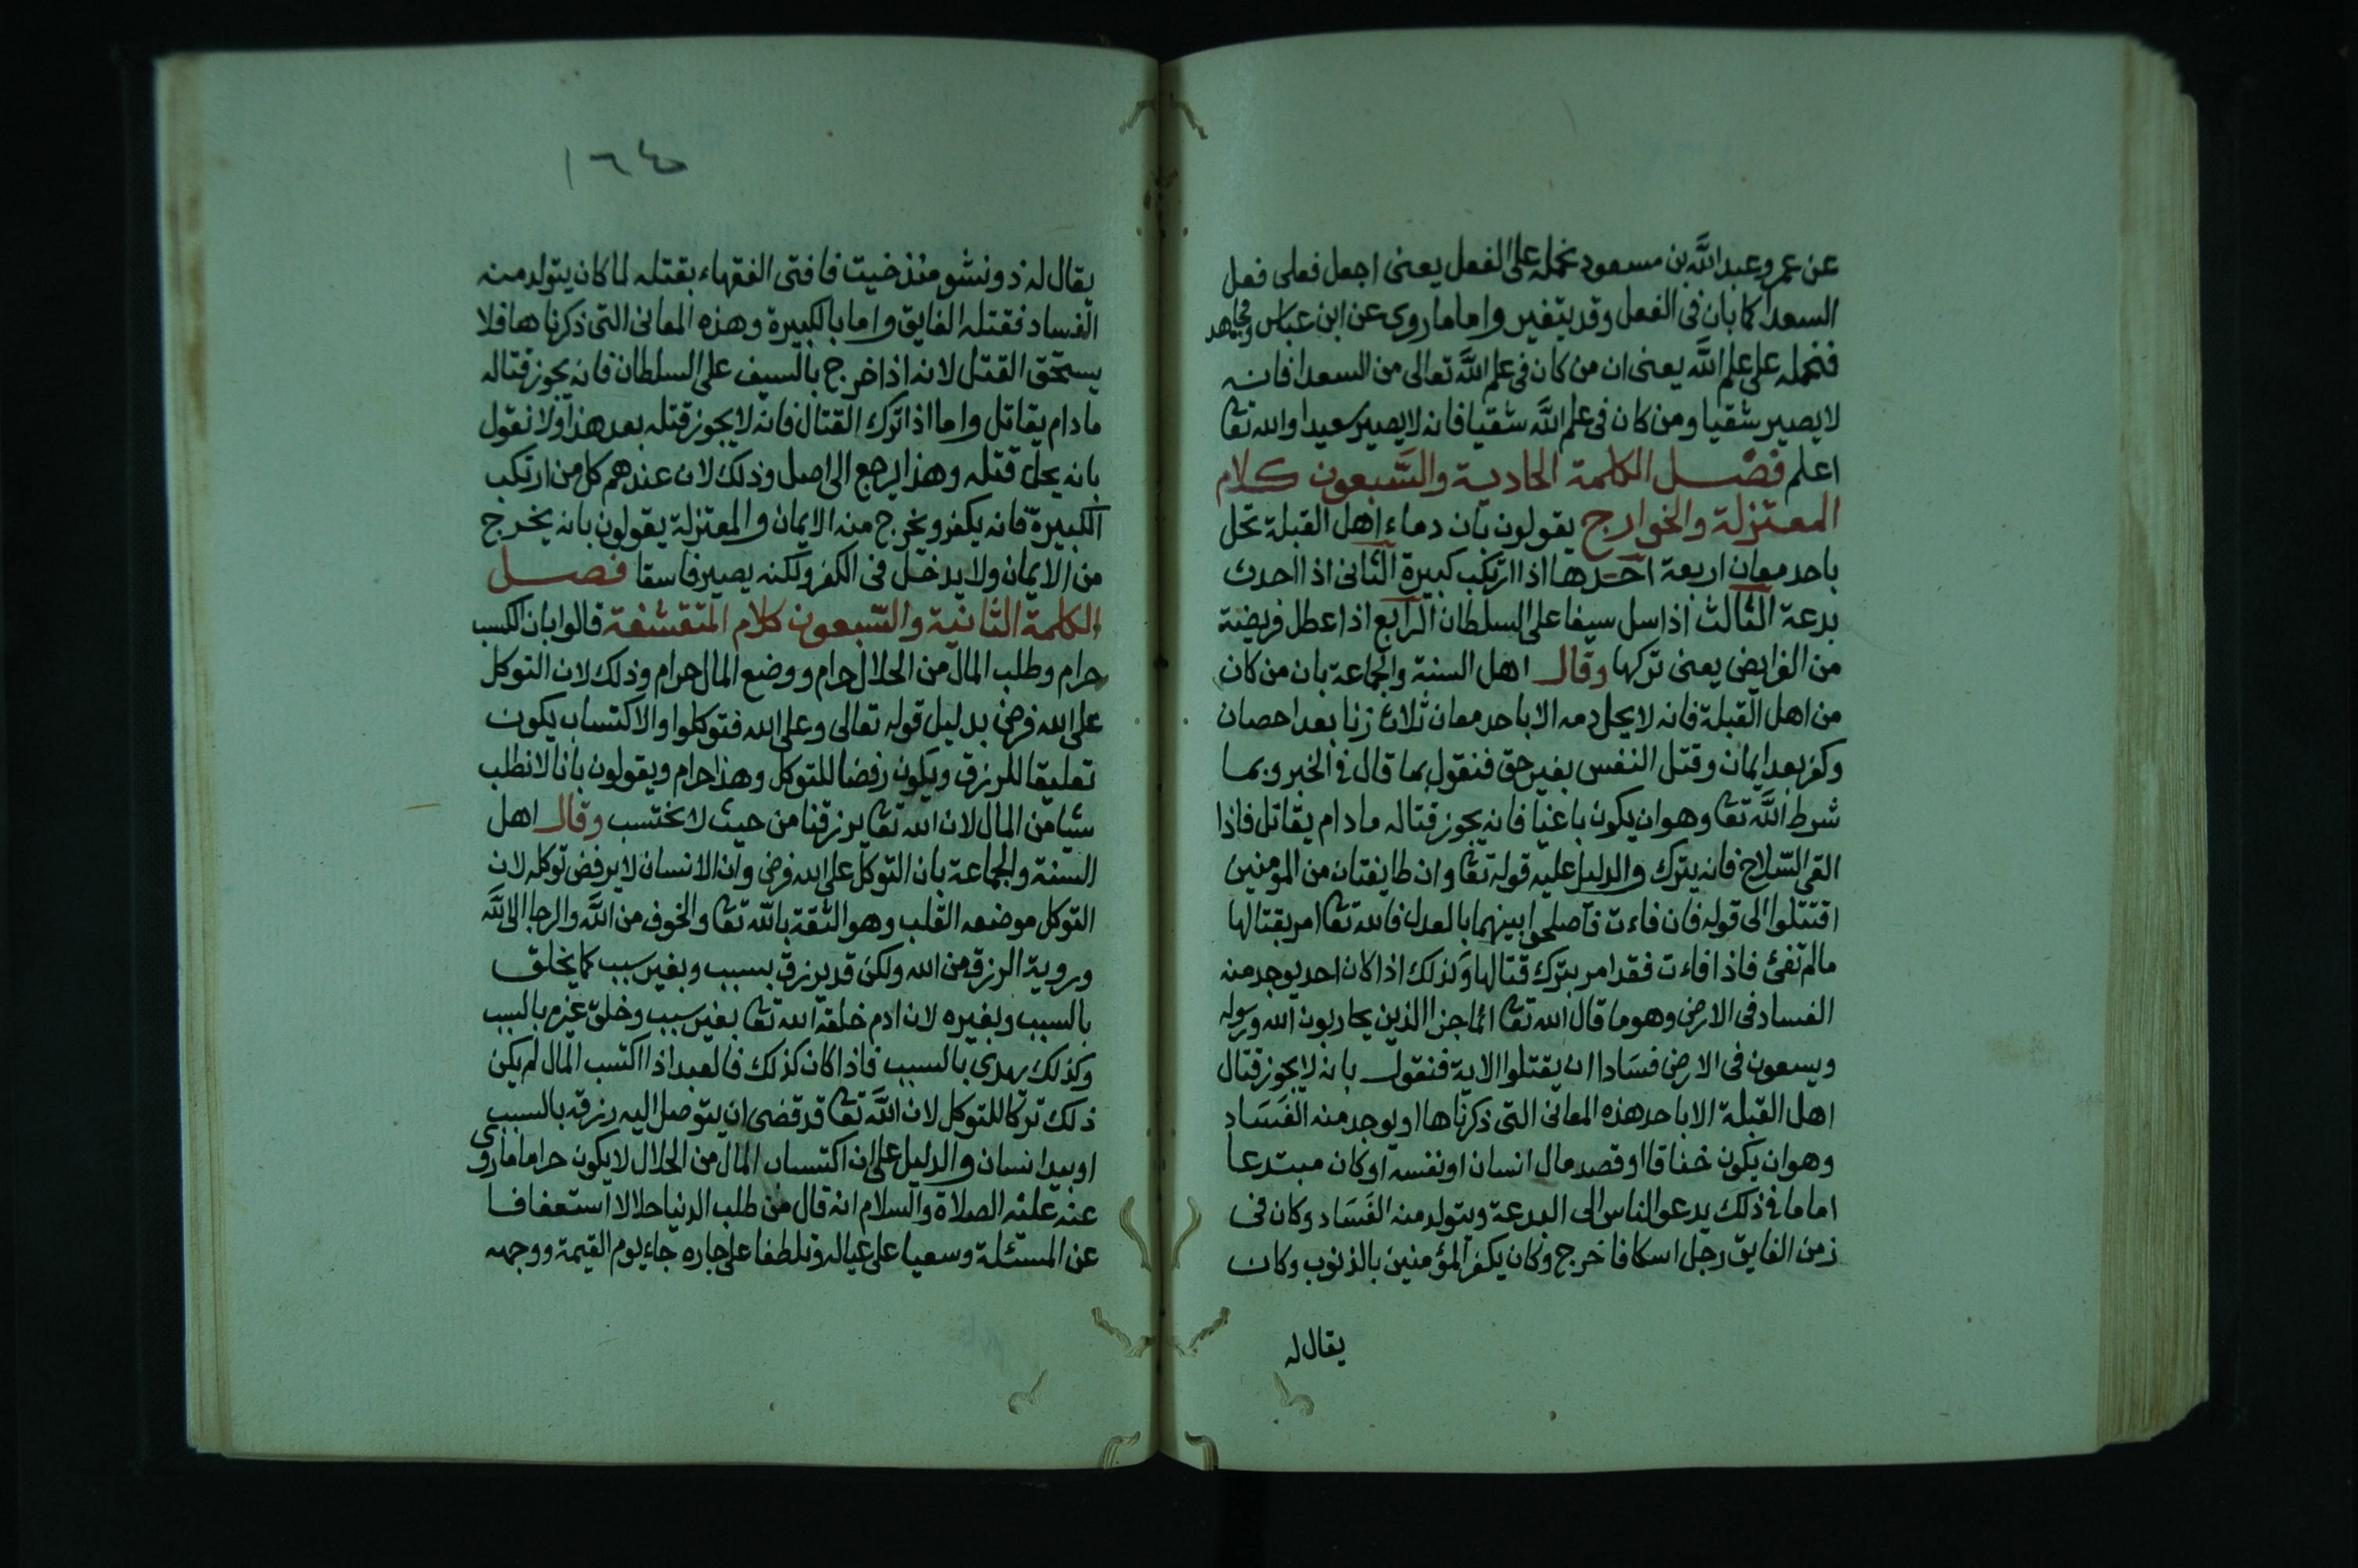 عن عمر وعبد الله بن مسعود نحمله على الفعل يعنى اجعل فعلى فعل
السعدا كما بان فى الفعل وقد يتغير واما ما روى عن ابن عباس ومجاهد
فنحمله على علم الله يعنى ان من كان فى علم الله تعالى من السعدا فانه
لا يصير شقيا ومن كان فى علم الله شقيا فانه لا يصير سعيدا والله تعا
اعلم فصل الكلمة الحادية والسبعون كلام
المعتزلة والخوارج يقولون بان دماء اهل القبلة تحل
باحد معان اربعة احدها اذا ارتكب كبيرة الثانى اذا احدث
بدعة الثالث اذا سل سيفا على السلطان الرابع اذا عطل فريضة
من الفرايض يعنى تركها وقال اهل السنة والجماعة بان من كان
من اهل القبلة فانه لا يحل دمه الا باحد معان ثلاث زنا بعد احصان
وكفر بعد ايمان وقتل النفس بغير حق فنقول بما قال فى الخبر وبما
شرط الله تعا وهو ان يكون باغيا فانه يجوز قتاله ما دام يقاتل فاذا
القى السلاح فانه يترك والدليل عليه قوله تعا وان طايفتان من المومنين
اقتتلوا الى قوله فان فاءت فاصلحوا بينهما بالعدل فالله تعا امر بقتالها
مالم تفئ فاذا فاءت فقد امر بترك قتالها وكذلك اذا كان احد يوجد منه
الفساد فى الارض وهو ما قال الله تعا انما جزا الذين يحاربون الله ورسوله
ويسعون فى الارض فسادا ان يقتلوا الاية فنقول بانه لا يجوز قتال
اهل القبلة الا باحد هذه المعانى التى ذكرناها او يوجد منه الفساد
وهو ان يكون خناقا او قصد مال انسان او نفسه او كان مبتدعا
اماما فى ذلك يدعو الناس الى البدعة ويتولد منه الفساد وكان فى
زمن الفايق رجل اسكافا خرج وكان يكفر المؤمنين بالذنوب وكان
يقال له
١٦٤
يقال له ذو نشو منذ خيت فافتى الفقهاء بقتله لما كان يتولد منه
الفساد فقتله الفايق واما بالكبيرة وهذه المعانى التى ذكرناها فلا
يستحق القتل لانه اذا خرج بالسيف على السلطان فانه يجوز قتاله
ما دام يقاتل واما اذا ترك القتال فانه لا يجوز قتله بعد هذا ولا نقول
بانه يحل قتله وهذا يرجع الى اصل وذلك لان عندهم كل من ارتكب
الكبيرة فانه يكفر ويخرج منه الايمان والمعتزلة يقولون بانه يخرج
من الايمان ولا يدخل فى الكفر ولكنه يصير فاسقا فصل
الكلمة الثانية والسبعون كلام المتقشفة قالوا بان الكسب
حرام وطلب المال من الحلال حرام ووضع المال حرام وذلك لان التوكل
على الله فرض بدليل قوله تعالى وعلى الله فتوكلوا والاكتساب يكون
تعليقا للرزق ويكون رفضا للتوكل وهذا حرام ويقولون بانا لا نطلب
شيا من المال لان الله تعا يرزقنا من حيث لا نحتسب وقال اهل
السنة والجماعة بان التوكل على الله فرض وان الانسان لا يرفض توكله لان
التوكل موضعه القلب وهو الثقة بالله تعا والخوف من الله والرجا الى الله
وروية الرزق من الله ولكن قد يرزق بسبب وبغير سبب كما يخلق
بالسبب وبغيره لان ادم خلقه الله تعا بغير سبب وخلق غيره بالسبب
وكذلك يهدى بالسبب فاذا كان كذلك فالعبد اذا اكتسب المال لم يكن
ذلك تركا للتوكل لان الله تعا قد قضى ان يتوصل اليه رزقه بالسبب
او بيد انسان والدليل على ان اكتساب المال من الحلال لا يكون حراما ما روى
عنه عليه الصلاة والسلام انه قال من طلب الدنيا حلالا استعفافا
عن المسئلة وسعيا على عياله وتلطفا على جاره جاء يوم القيمة ووجهه